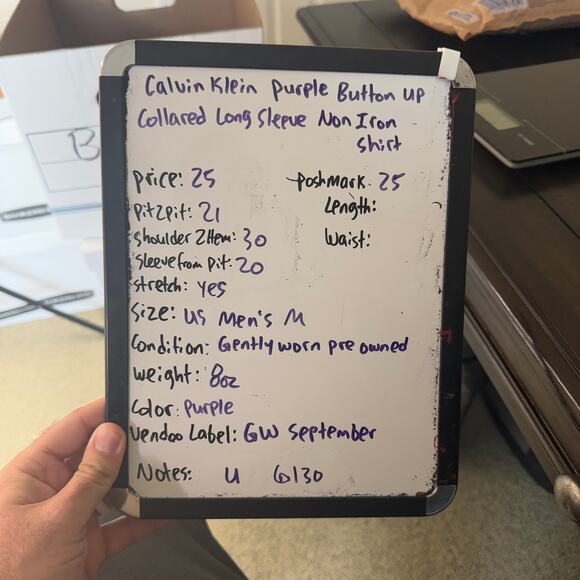 Calvin Klein Purple Button Up
Collared Long Sleeve Non Iron
Shirt
Price: 25
Poshmark: 25
Pit2pit: 21
Length:
Shoulder 2 Hem: 30
Waist:
Sleeve from Pit: 20
Stretch: Yes
Size: US Men's M
Condition: Gently worn pre owned
Weight: 8oz
Color: Purple
Vendoo Label: GW September
Notes: U 6130
B